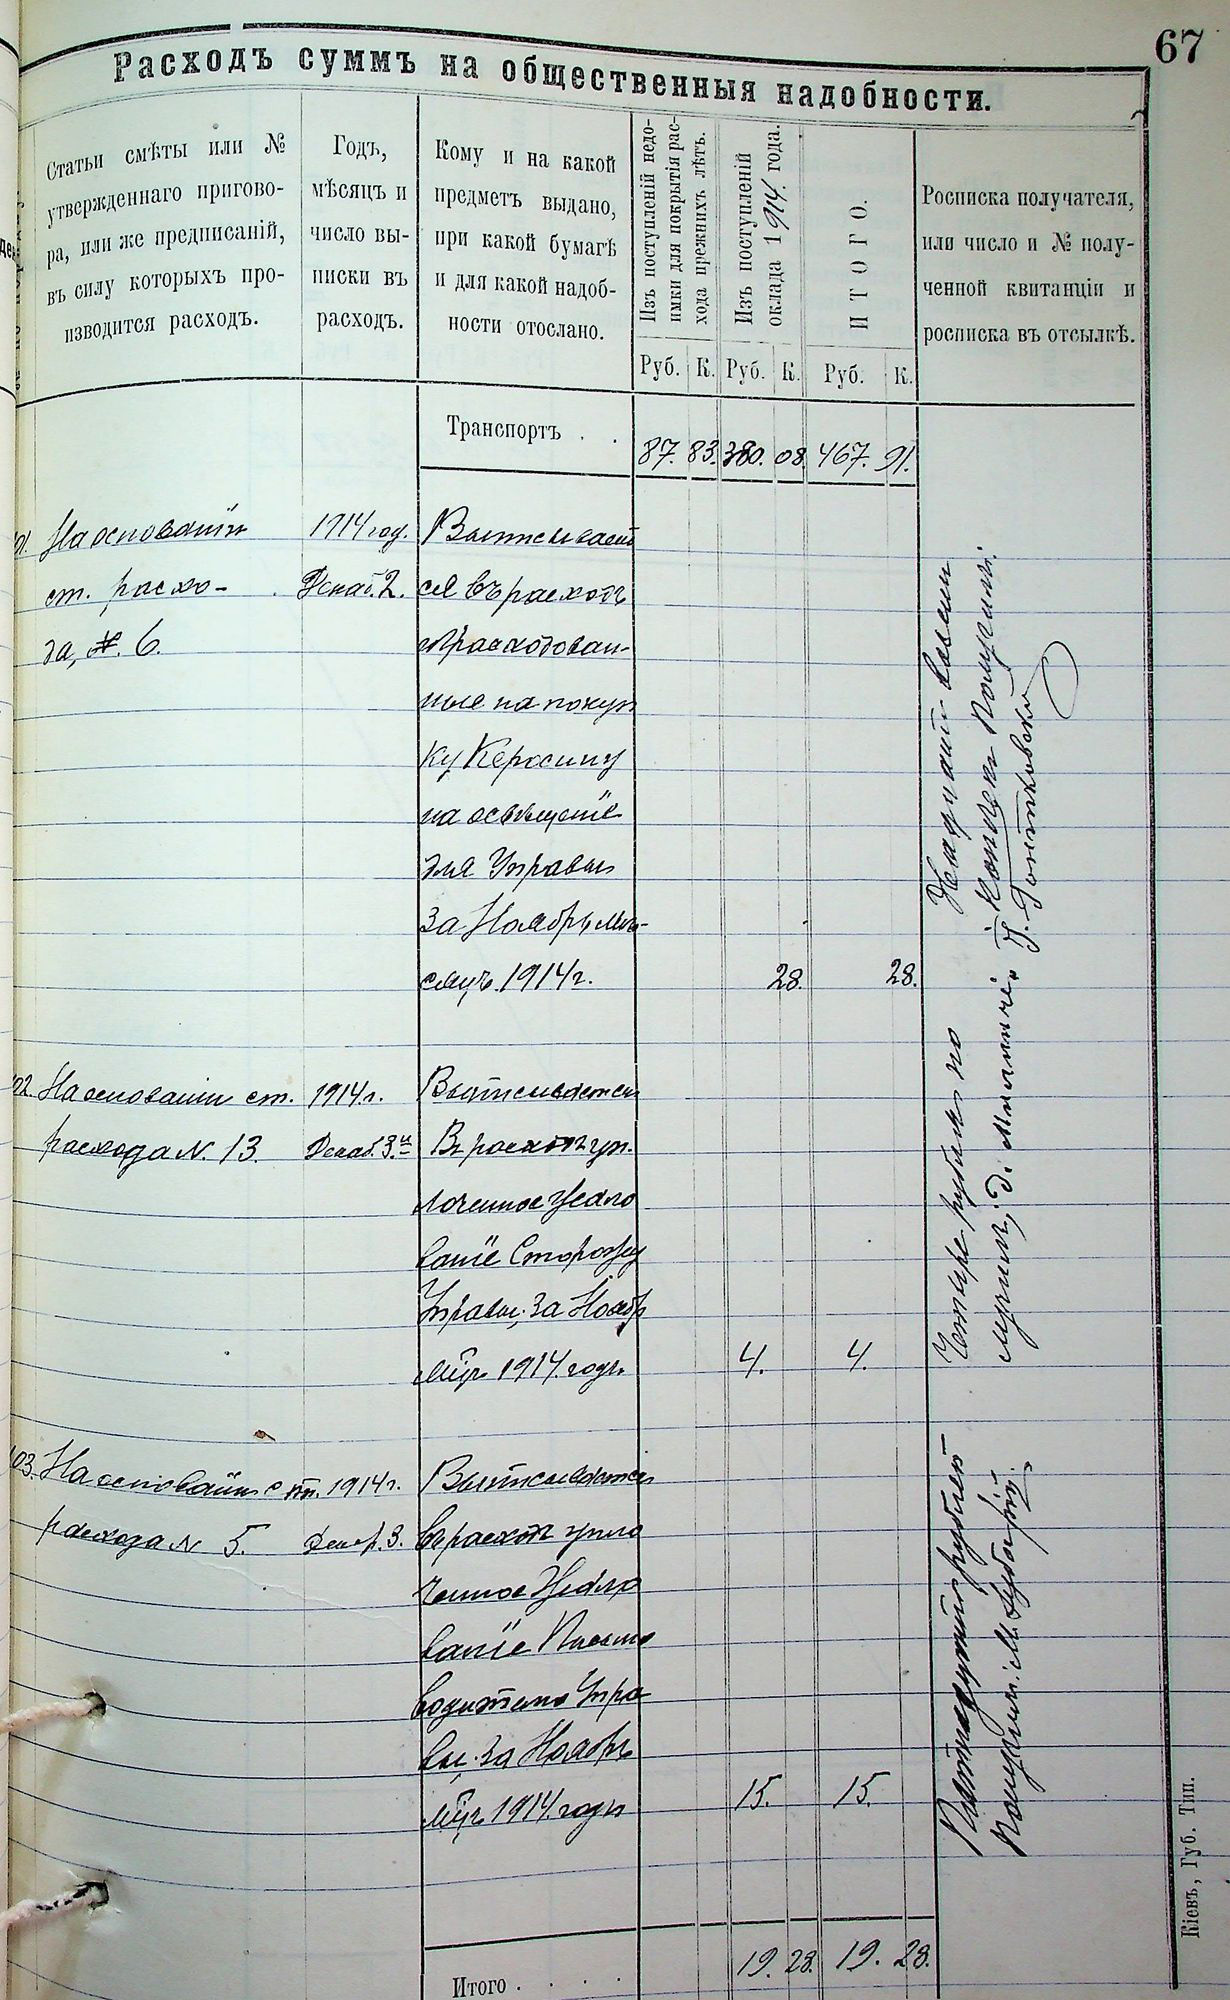 67
Расходъ суммъ на общественныя надобности.
Статьи смѣты или №
утвержденнаго пригово-
ра, или же предписаній,
въ силу которыхъ про-
изводится расходъ.
Годъ,
мѣсяцъ и
число вы-
писки въ
расходъ.
Кому и на какой
предметъ выдано,
при какой бумагѣ
и для какой надоб-
ности отослано.
Изъ поступленій недо-
имки для покрытія рас-
хода прежнихъ лѣтъ.
Изъ поступленій
оклада 1914. года.
ИТОГО.
Росписка получателя,
или число и № полу-
ченной квитанціи и
росписка въ отсылкѣ.
Руб. К. Руб. К. Руб. К.
Транспортъ . . 87. 83. 380. 08. 467. 91.
01. На основаніи
ст. расхо-
да, №. 6.
1914 год.
Декаб. 2.
Выписывает
ся въ расходъ
израсходован-
ные на покуп
ку Керосину
на освѣщеніе
для Управы
за Ноябрь мѣ-
сяцъ. 1914 г. 28. 28.
Двадцать восемь
Копѣекъ Получилъ:
02. На основаніи ст.
расхода N. 13.
1914 г.
Декаб. 3.
Выписывается
Въ расходъ уп.
лоченное Жало
ваніе Сторожу
Управы, за Ноябр
мѣц. 1914. годъ. 4. 4.
Четыре рубля по
03. На основаніи ст.
расхода N 5.
1914 г.
Декаб. 3.
Выписывается
въ расходъ упло
ченное Жало
ваніе Письмо
водителю Упра
вы. за Ноябрь
мѣцъ 1914. года 15. 15.
Пятнадцать рублей
Получилъ:
Итого . . . . 19. 28. 19. 28.
Кіевъ, Губ. Тип.